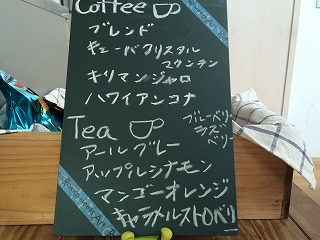 Coffee
ブレンド
キューバクリスタル
マウンテン
キリマンジャロ
ハワイアンコナ
Tea
ブルーベリー
ラズ
ベリー
アールグレー
アップルシナモン
マンゴーオレンジ
キャラメルストロベリ